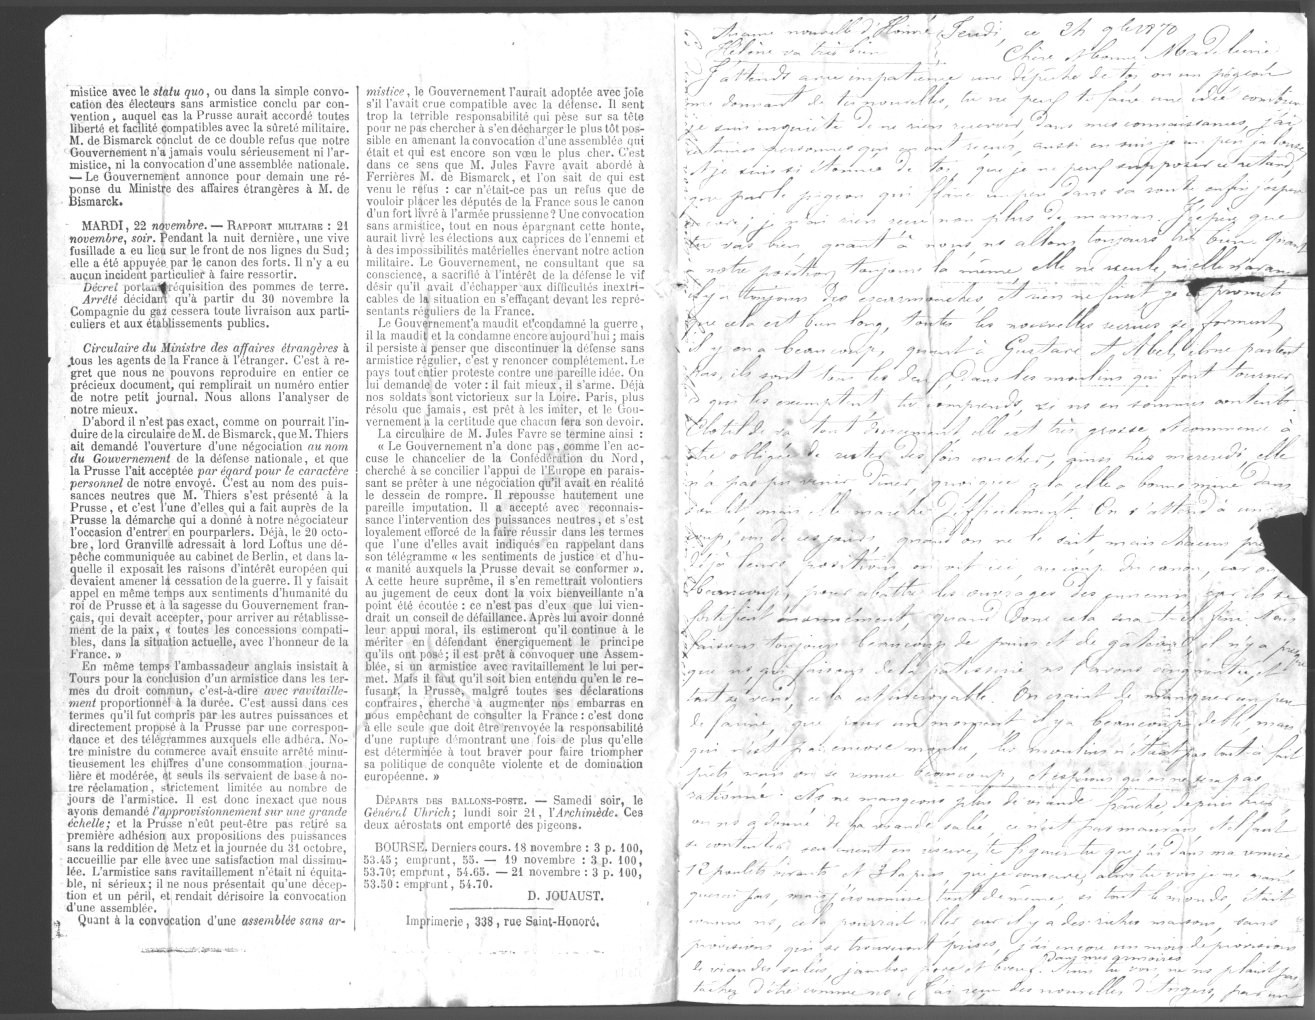 mistice avec le statu quo, ou dans la simple convo-
cation des électeurs sans armistice conclu par con-
vention, auquel cas la Prusse aurait accordé toutes
liberté et facilité compatibles avec la sûreté militaire.
M. de Bismarck conclut de ce double refus que notre
Gouvernement n'a jamais voulu sérieusement ni l'ar-
mistice, ni la convocation d'une assemblée nationale.
— Le Gouvernement annonce pour demain une ré-
ponse du Ministre des affaires étrangères à M. de
Bismarck.
MARDI, 22 novembre. — RAPPORT MILITAIRE : 21
novembre, soir. Pendant la nuit dernière, une vive
fusillade a eu lieu sur le front de nos lignes du Sud;
elle a été appuyée par le canon des forts. Il n'y a eu
aucun incident particulier à faire ressortir.
Décret portant réquisition des pommes de terre.
Arrêté décidant qu'à partir du 30 novembre la
Compagnie du gaz cessera toute livraison aux parti-
culiers et aux établissements publics.
Circulaire du Ministre des affaires étrangères à
tous les agents de la France à l'étranger. C'est à re-
gret que nous ne pouvons reproduire en entier ce
précieux document, qui remplirait un numéro entier
de notre petit journal. Nous allons l'analyser de
notre mieux.
D'abord il n'est pas exact, comme on pourrait l'in-
duire de la circulaire de M. de Bismarck, que M. Thiers
ait demandé l'ouverture d'une négociation au nom
du Gouvernement de la défense nationale, et que
la Prusse l'ait acceptée par égard pour le caractère
personnel de notre envoyé. C'est au nom des puis-
sances neutres que M. Thiers s'est présenté à la
Prusse, et c'est l'une d'elles qui a fait auprès de la
Prusse la démarche qui a donné à notre négociateur
l'occasion d'entrer en pourparlers. Déjà, le 20 octo-
bre, lord Granville adressait à lord Loftus une dé-
pêche communiquée au cabinet de Berlin, et dans la-
quelle il exposait les raisons d'intérêt européen qui
devaient amener la cessation de la guerre. Il y faisait
appel en même temps aux sentiments d'humanité du
roi de Prusse et à la sagesse du Gouvernement fran-
çais, qui devait accepter, pour arriver au rétablisse-
ment de la paix, « toutes les concessions compati-
bles, dans la situation actuelle, avec l'honneur de la
France. »
En même temps l'ambassadeur anglais insistait à
Tours pour la conclusion d'un armistice dans les ter-
mes du droit commun, c'est-à-dire avec ravitaille-
ment proportionnel à la durée. C'est aussi dans ces
termes qu'il fut compris par les autres puissances et
directement proposé à la Prusse par une correspon-
dance et des télégrammes auxquels elle adhéra. No-
tre ministre du commerce avait ensuite arrêté minu-
tieusement les chiffres d'une consommation journa-
lière et modérée, et seuls ils servaient de base à no-
tre réclamation, strictement limitée au nombre de
jours de l'armistice. Il est donc inexact que nous
ayons demandé l'approvisionnement sur une grande
échelle; et la Prusse n'eût peut-être pas retiré sa
première adhésion aux propositions des puissances
sans la reddition de Metz et la journée du 31 octobre,
accueillie par elle avec une satisfaction mal dissimu-
lée. L'armistice sans ravitaillement n'était ni équita-
ble, ni sérieux; il ne nous présentait qu'une décep-
tion et un péril, et rendait dérisoire la convocation
d'une assemblée.
Quant à la convocation d'une assemblée sans ar-
mistice, le Gouvernement l'aurait adoptée avec joie
s'il l'avait crue compatible avec la défense. Il sent
trop la terrible responsabilité qui pèse sur sa tête
pour ne pas chercher à s'en décharger le plus tôt pos-
sible en amenant la convocation d'une assemblée qui
était et qui est encore son vœu le plus cher. C'est
dans ce sens que M. Jules Favre avait abordé à
Ferrières M. de Bismarck, et l'on sait de qui est
venu le refus : car n'était-ce pas un refus que de
vouloir placer les députés de la France sous le canon
d'un fort livré à l'armée prussienne? Une convocation
sans armistice, tout en nous épargnant cette honte,
aurait livré les élections aux caprices de l'ennemi et
à des impossibilités matérielles énervant notre action
militaire. Le Gouvernement, ne consultant que sa
conscience, a sacrifié à l'intérêt de la défense le vif
désir qu'il avait d'échapper aux difficultés inextri-
cables de la situation en s'effaçant devant les repré-
sentants réguliers de la France.
Le Gouvernement a maudit et condamné la guerre,
il la maudit et la condamne encore aujourd'hui; mais
il persiste à penser que discontinuer la défense sans
armistice régulier, c'est y renoncer complètement. Le
pays tout entier proteste contre une pareille idée. On
lui demande de voter : il fait mieux, il s'arme. Déjà
nos soldats sont victorieux sur la Loire. Paris, plus
résolu que jamais, est prêt à les imiter, et le Gou-
vernement a la certitude que chacun fera son devoir.
La circulaire de M. Jules Favre se termine ainsi :
« Le Gouvernement n'a donc pas, comme l'en ac-
cuse le chancelier de la Confédération du Nord,
cherché à se concilier l'appui de l'Europe en parais-
sant se prêter à une négociation qu'il avait en réalité
le dessein de rompre. Il repousse hautement une
pareille imputation. Il a accepté avec reconnais-
sance l'intervention des puissances neutres, et s'est
loyalement efforcé de la faire réussir dans les termes
que l'une d'elles avait indiqués en rappelant dans
son télégramme « les sentiments de justice et d'hu-
« manité auxquels la Prusse devait se conformer ».
A cette heure suprême, il s'en remettrait volontiers
au jugement de ceux dont la voix bienveillante n'a
point été écoutée : ce n'est pas d'eux que lui vien-
drait un conseil de défaillance. Après lui avoir donné
leur appui moral, ils estimeront qu'il continue à le
mériter en défendant énergiquement le principe
qu'ils ont posé; il est prêt à convoquer une Assem-
blée, si un armistice avec ravitaillement le lui per-
met. Mais il faut qu'il soit bien entendu qu'en le re-
fusant, la Prusse, malgré toutes ses déclarations
contraires, cherche à augmenter nos embarras en
nous empêchant de consulter la France : c'est donc
à elle seule que doit être renvoyée la responsabilité
d'une rupture démontrant une fois de plus qu'elle
est déterminée à tout braver pour faire triompher
sa politique de conquête violente et de domination
européenne. »
DÉPARTS DES BALLONS-POSTE. — Samedi soir, le
Général Uhrich; lundi soir 21, l'Archimède. Ces
deux aérostats ont emporté des pigeons.
BOURSE. Derniers cours. 18 novembre : 3 p. 100,
53.45; emprunt, 55. — 19 novembre : 3 p. 100,
53.70; emprunt, 54.65. — 21 novembre : 3 p. 100,
53.50: emprunt, 54.70.
D. JOUAUST.
Imprimerie, 338, rue Saint-Honoré.
Aucune nouvelle d'
Hélène va très bien
Jeudi, ce 24 9bre 1870
Chère et bonne Madeleine
J'attends avec impatience une dépêche de toi ou un pigeon
me donnant de tes nouvelles, tu ne peux te faire une idée combien
je suis inquiète de ne rien recevoir, dans mes connaissances, j'ai
certaines personnes qui en ont reçues, aussi en suis je un peu jalouse
et je suis si étonnée de toi, que je ne peux supposer ce retard
que par le pigeon qui flâne un peu dans sa route enfin j'espère
je n'ai rien reçu non plus de maman. J'espère que
tu vas bien quant à nous ns allons toujours très bien. Quant
notre position toujours la même elle ne recule, ni elle n'avance
il y a toujours des escarmouches et rien ne finit je te promets
que cela est bien long, toutes les nouvelles recrues se forment
il y en a beaucoup, quant à Gustave et Abel, ils ne partent
pas, ils sont tous les deux dans les moulins qui font tourner
et qui les exemptent tu comprends si ns en sommes contents
Clotilde va tout doucement elle est très grosse et commence à
être obligée de rester des fois couchée, ainsi hier mercredi, elle
n'a pas pu venir dîner, quoique cela elle a bonne mine dans
son lit mais elle marche difficilement. On s'attend à un
coup, un de ces jours, quand on ne le sait mais chacun
déjà leurs positions on voit ici, du canon, car on
beaucoup pour abattre les ouvrages des prussiens car ils se
fortifient énormément, quand donc cela sera-t-il fini. Nous
faisons toujours beaucoup de pains
tout se vend, cela est incroyable. On craint de manquer un peu
de farine, que en ce moment il y a beaucoup de blé, mais
qui n'est pas encore moulu, les moulins n'étant pas tout à fait
prêts, mais on se remue beaucoup, et espérons qu'on ne sera pas
rationné. Ns ne mangeons plus de viande fraîche depuis hier,
on ns a donné de la viande salée, ce n'est pas mauvais et il faut
se contenter
12 poulets vivants et 3 lapins que je conserve, ainsi tu vois je ne
manquerai pas, mais j'économise tant de même, si tout le monde était
comme ns, cela pourrait aller car il y a des riches maisons, sans
provisions qui se trouveront prises, j'ai encore un mois de provisions
de viandes salées, jambon, porc et bœuf. Dans mes armoires Ainsi tu vois, ne ns plains pas,
tâchez d'être comme ns. J'ai reçu des nouvelles d'Angers, par un